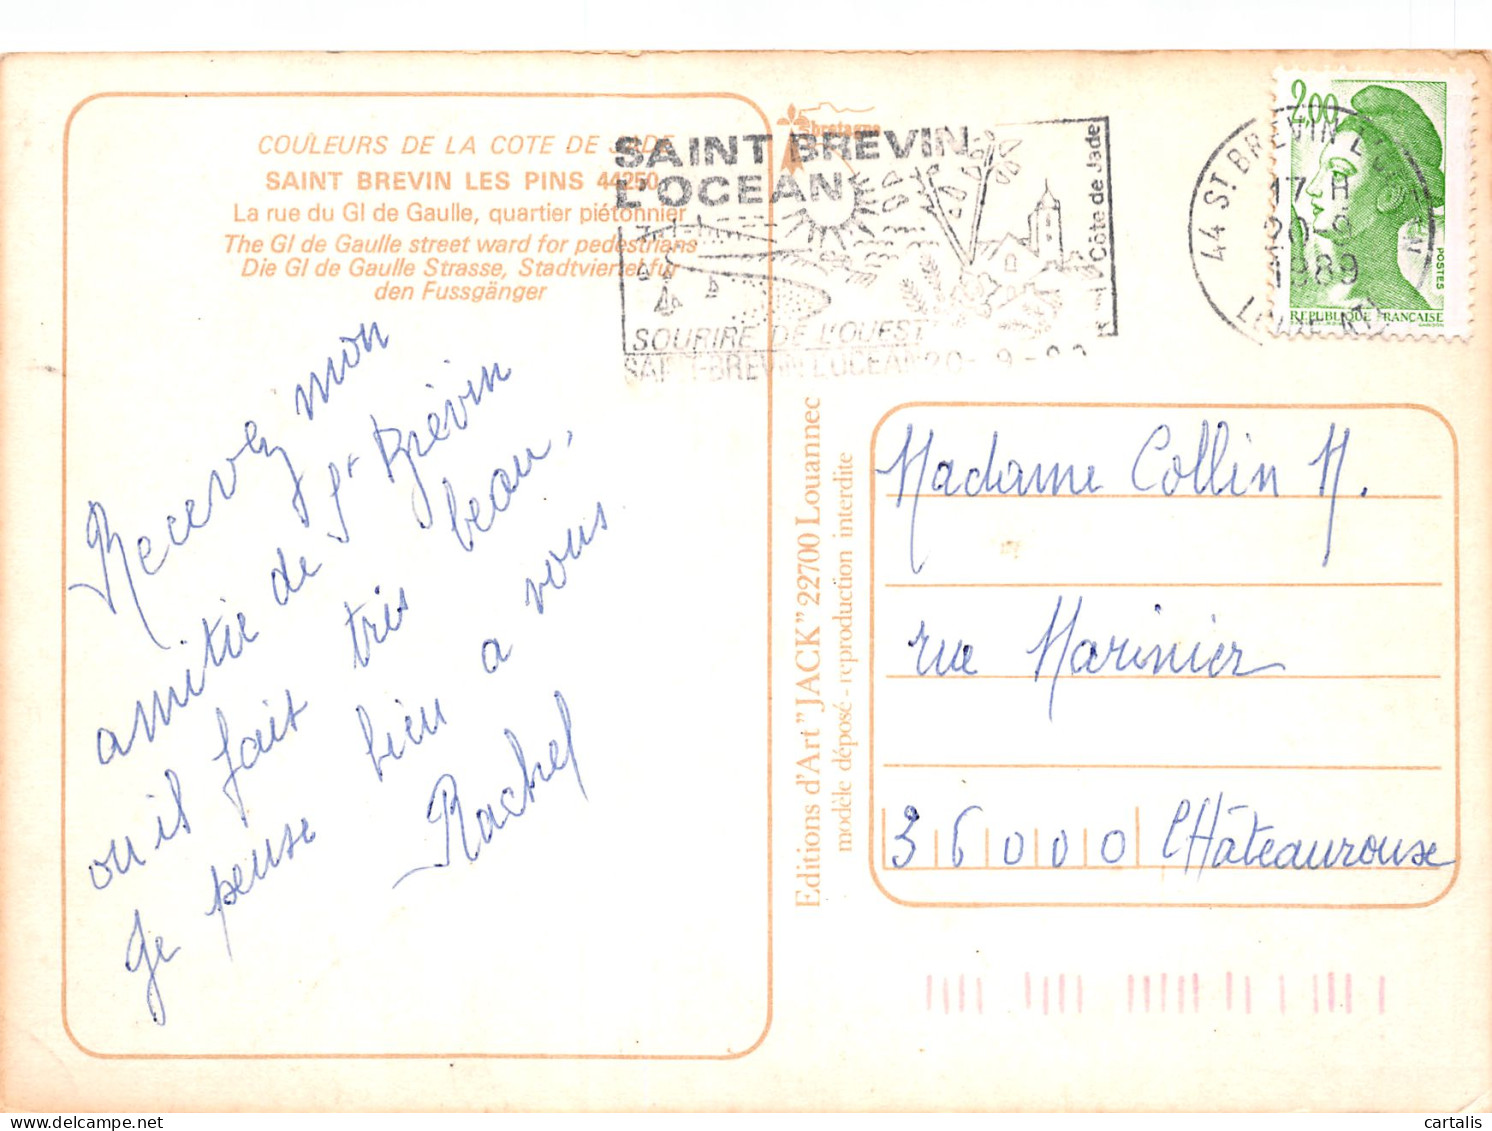 COULEURS DE LA COTE DE JADE
SAINT BREVIN LES PINS 44250
La rue du Gl de Gaulle, quartier piétonnier
The Gl de Gaulle street ward for pedestrians
Die Gl de Gaulle Strasse, Stadtviertel für
den Fussgänger
Recevez mon
amitié de St Brévin
ou il fait très beau,
Je pense bien a vous
Rachel
bretagne
SAINT BREVIN
L'OCEAN
Côte de Jade
SOURIRE DE L'OUEST
SAINT-BREVIN L'OCEAN 20-9-89
44 ST BREVIN L'OCEAN
17 H
20-9
1989
2,00
POSTES
REPUBLIQUE FRANÇAISE
Editions d'Art "JACK" 22700 Louannec
modèle déposé - reproduction interdite
Madame Collin M.
rue Marinier
36000 Châteaurouse
cartalis